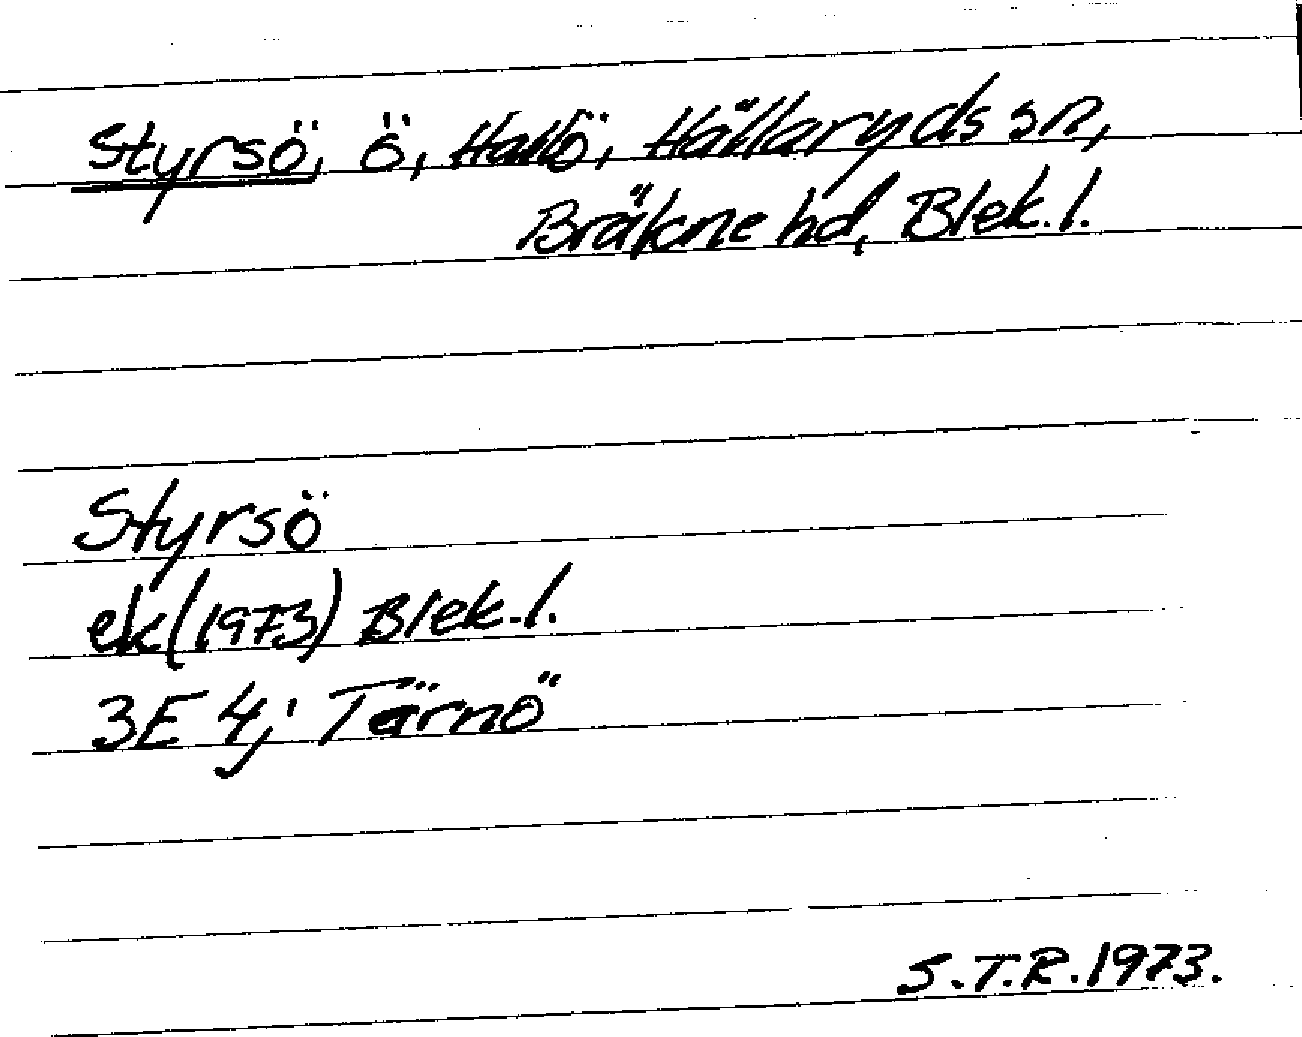 Styrsö, ö, Hallö, Hällaryds sn,
Bräkne hd, Blek. l.
Styrsö
ek (1973) Blek. l.
3E 4j Tärnö
S.T.R. 1973.